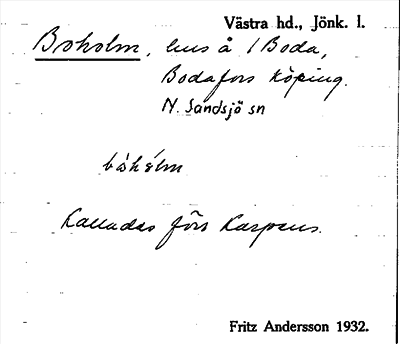 Västra hd., Jönk. l.
Boholm, hus å 1 Boda,
Bodafors köping.
N. Sandsjö sn
bòhólm
Kallades förs Karpens.
Fritz Andersson 1932.